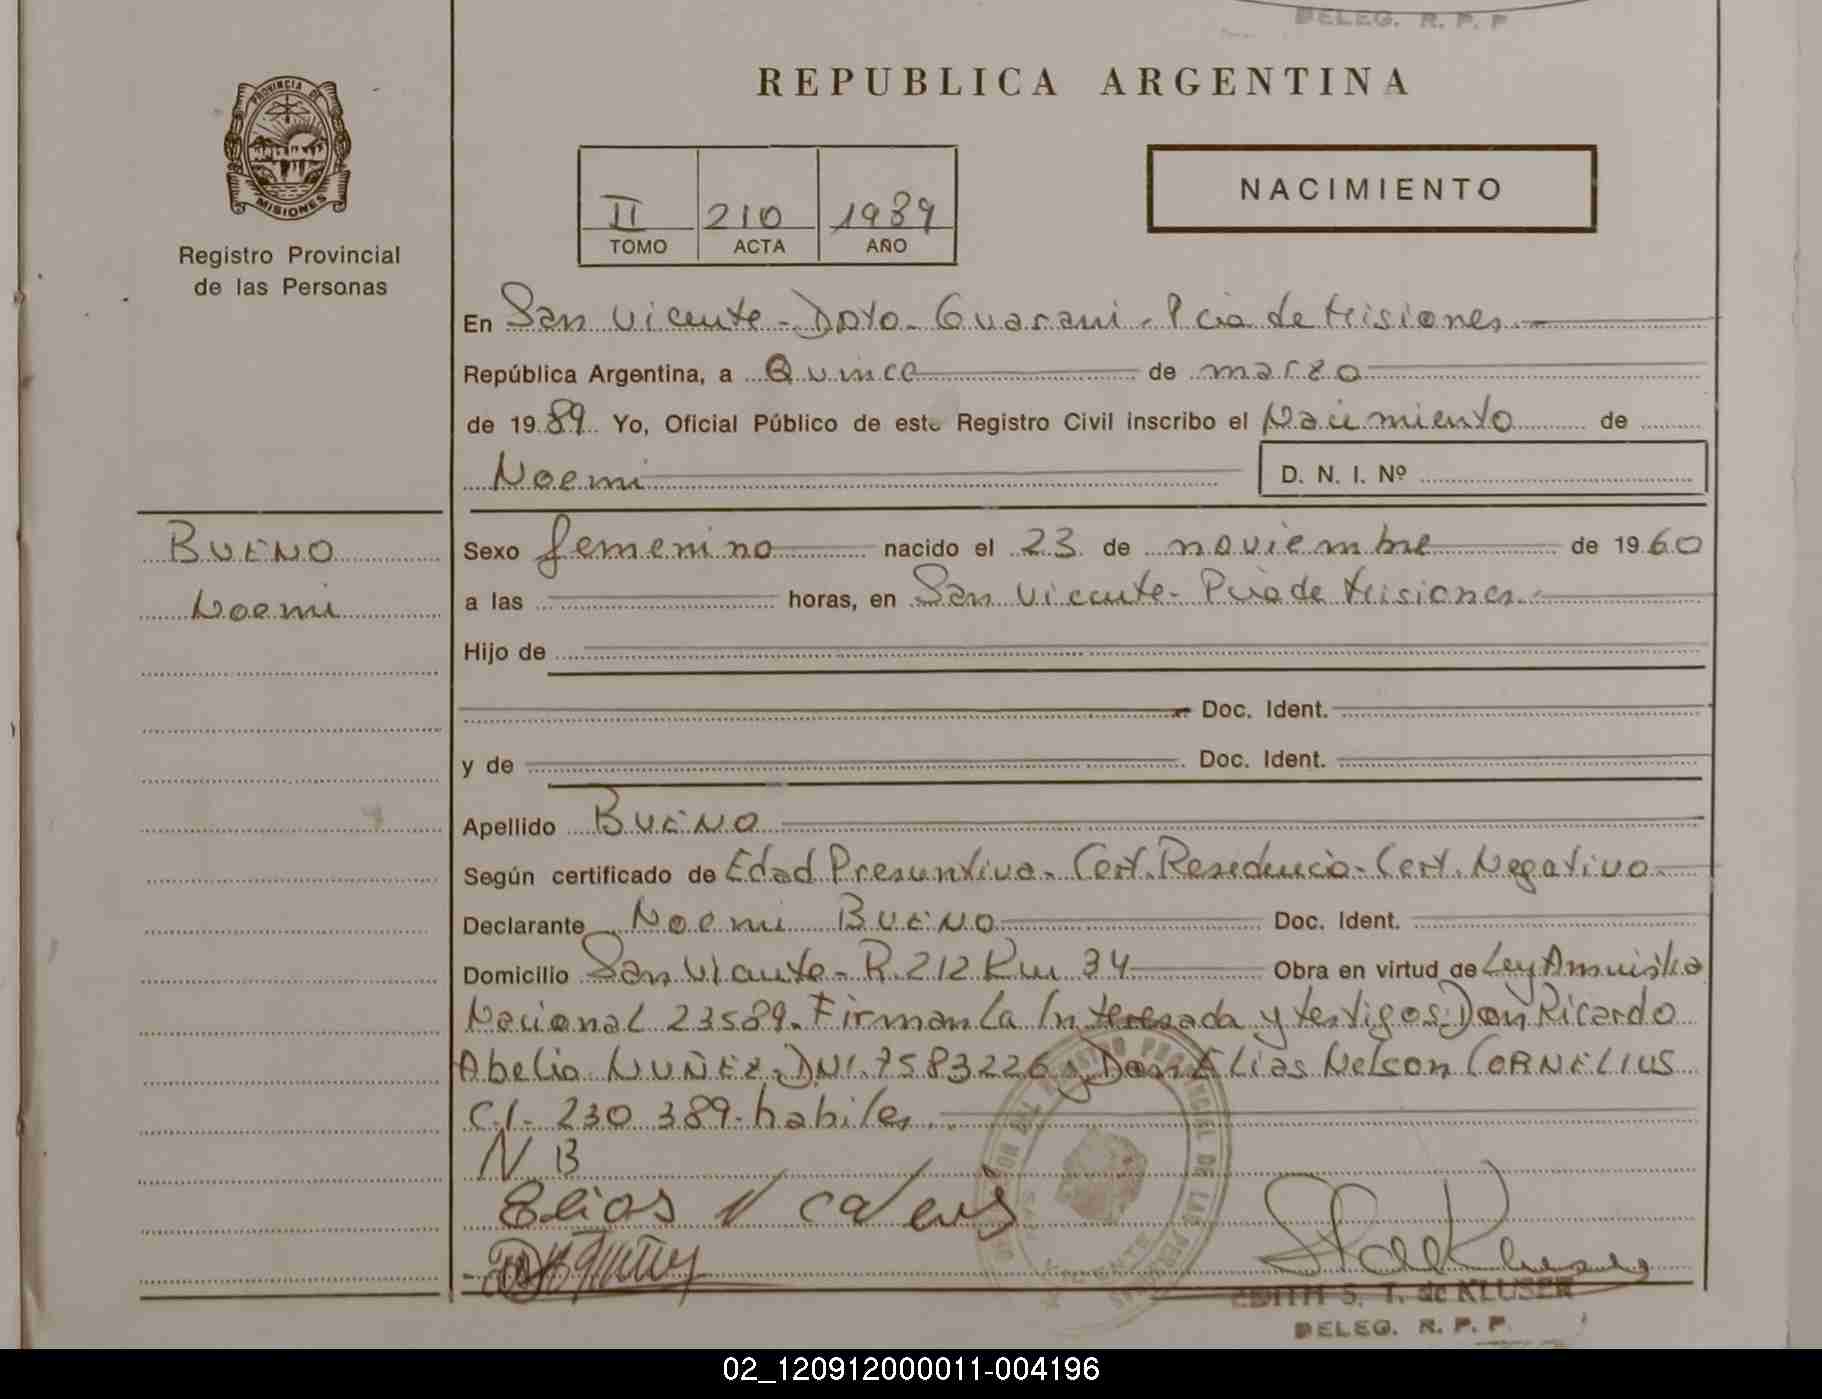 DELEG. R. P. P
REPUBLICA ARGENTINA
PROVINCIA DE
MISIONES
Registro Provincial
de las Personas
II 210 1989
TOMO ACTA AÑO
NACIMIENTO
En San Vicente - Dpto. Guarani - Pcia de Misiones
República Argentina, a Quince de marzo
de 1989 Yo, Oficial Público de este Registro Civil inscribo el Nacimiento de
Noemi D. N. I. Nº
BUENO
Noemi
Sexo femenino nacido el 23 de noviembre de 1960
a las horas, en San Vicente - Pcia de Misiones
Hijo de
Doc. Ident.
y de Doc. Ident.
Apellido BUENO
Según certificado de Edad Presuntiva - Cert. Residencia - Cert. Negativo
Declarante Noemi BUENO Doc. Ident.
Domicilio San Vicente - R. 212 Km 34 Obra en virtud de Ley Amnistia
Nacional 23589. Firman La Interesada y testigos Don Ricardo
Abelio NUÑEZ - DNI. 7583226 y Don Elias Nelson CORNELIUS
C.I. 230.389 - habiles
N B
Elias N
EDITH S. T. de KLUSER
DELEG. R. P. P.
02_120912000011-004196